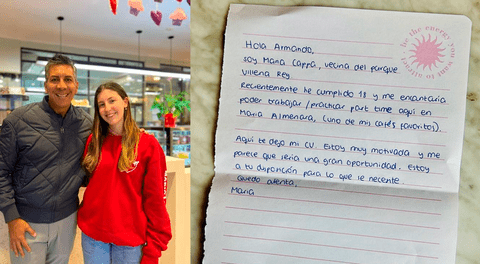 be the energy you want to attract
Hola Armando,
Soy Maria Cappa, vecina del parque
Villena Rey.
Recientemente he cumplido 18 y me encantaria
poder trabajar / practicar part time aquí en
Maria Almenara, (uno de mis cafés favoritos).
Aquí te dejo mi CV. Estoy muy motivada y me
parece que sería una gran oportunidad. estoy
a tu disposición para lo que se necesite
Quedo atenta,
Maria